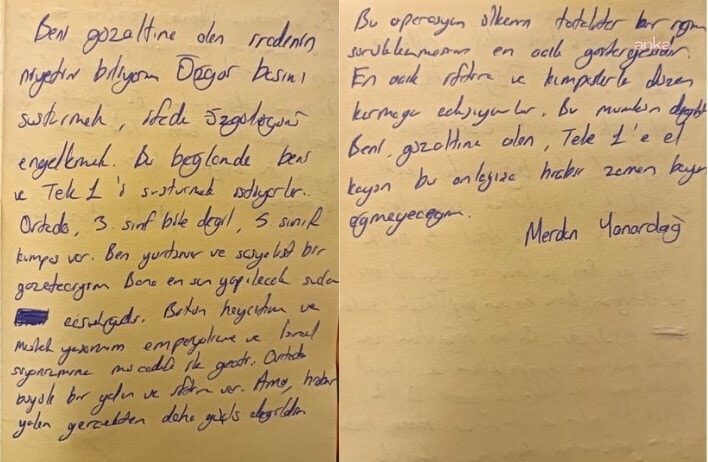 Beni gözaltına alan iradenin
niyetini biliyorum Özgür basını
susturmak, ifade özgürlüğünü
engellemek. Bu bağlamda beni
ve Tele 1'i susturmak istiyorlar.
Ortada, 3. sınıf bile değil, 5. sınıf
kumpas var. Ben yurtsever ve sosyalist bir
gazeteciyim Bana en son yapılacak suçlama
casusluktur. Bütün hayatım ve
meslek yaşamım emperyalizme ve İsrail
siyonizmine mücadele ile geçti. Ortada
büyük bir yalan ve iftira var. Ama, hiçbir
yalan gerçekten daha güçlü değildir.
Bu operasyon ülkenin totaliter bir rejime
sürüklenmesinin en açık göstergesidir.
anka
En açık iftira ve kumpaslarla düzen
kurmaya çalışıyorlar. Bu mümkün değildir
Beni gözaltına alan, Tele 1'e el
koyan bu anlayışa hiçbir zaman boyun
eğmeyeceğim.
Merdan Yanardağ